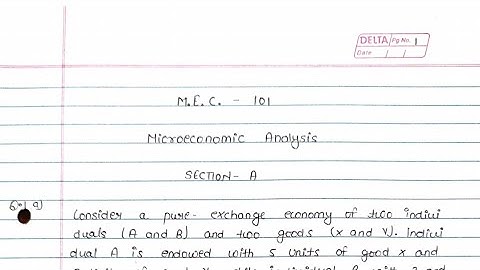 DELTA Pg No. 1
Date
M.E.C. - 101
Microeconomic Analysis
SECTION- A
a)
Consider a pure- exchange economy of two indivi
duals (A and B) and two goods (X and Y). Indivi
dual A is endowed with 5 units of good x and